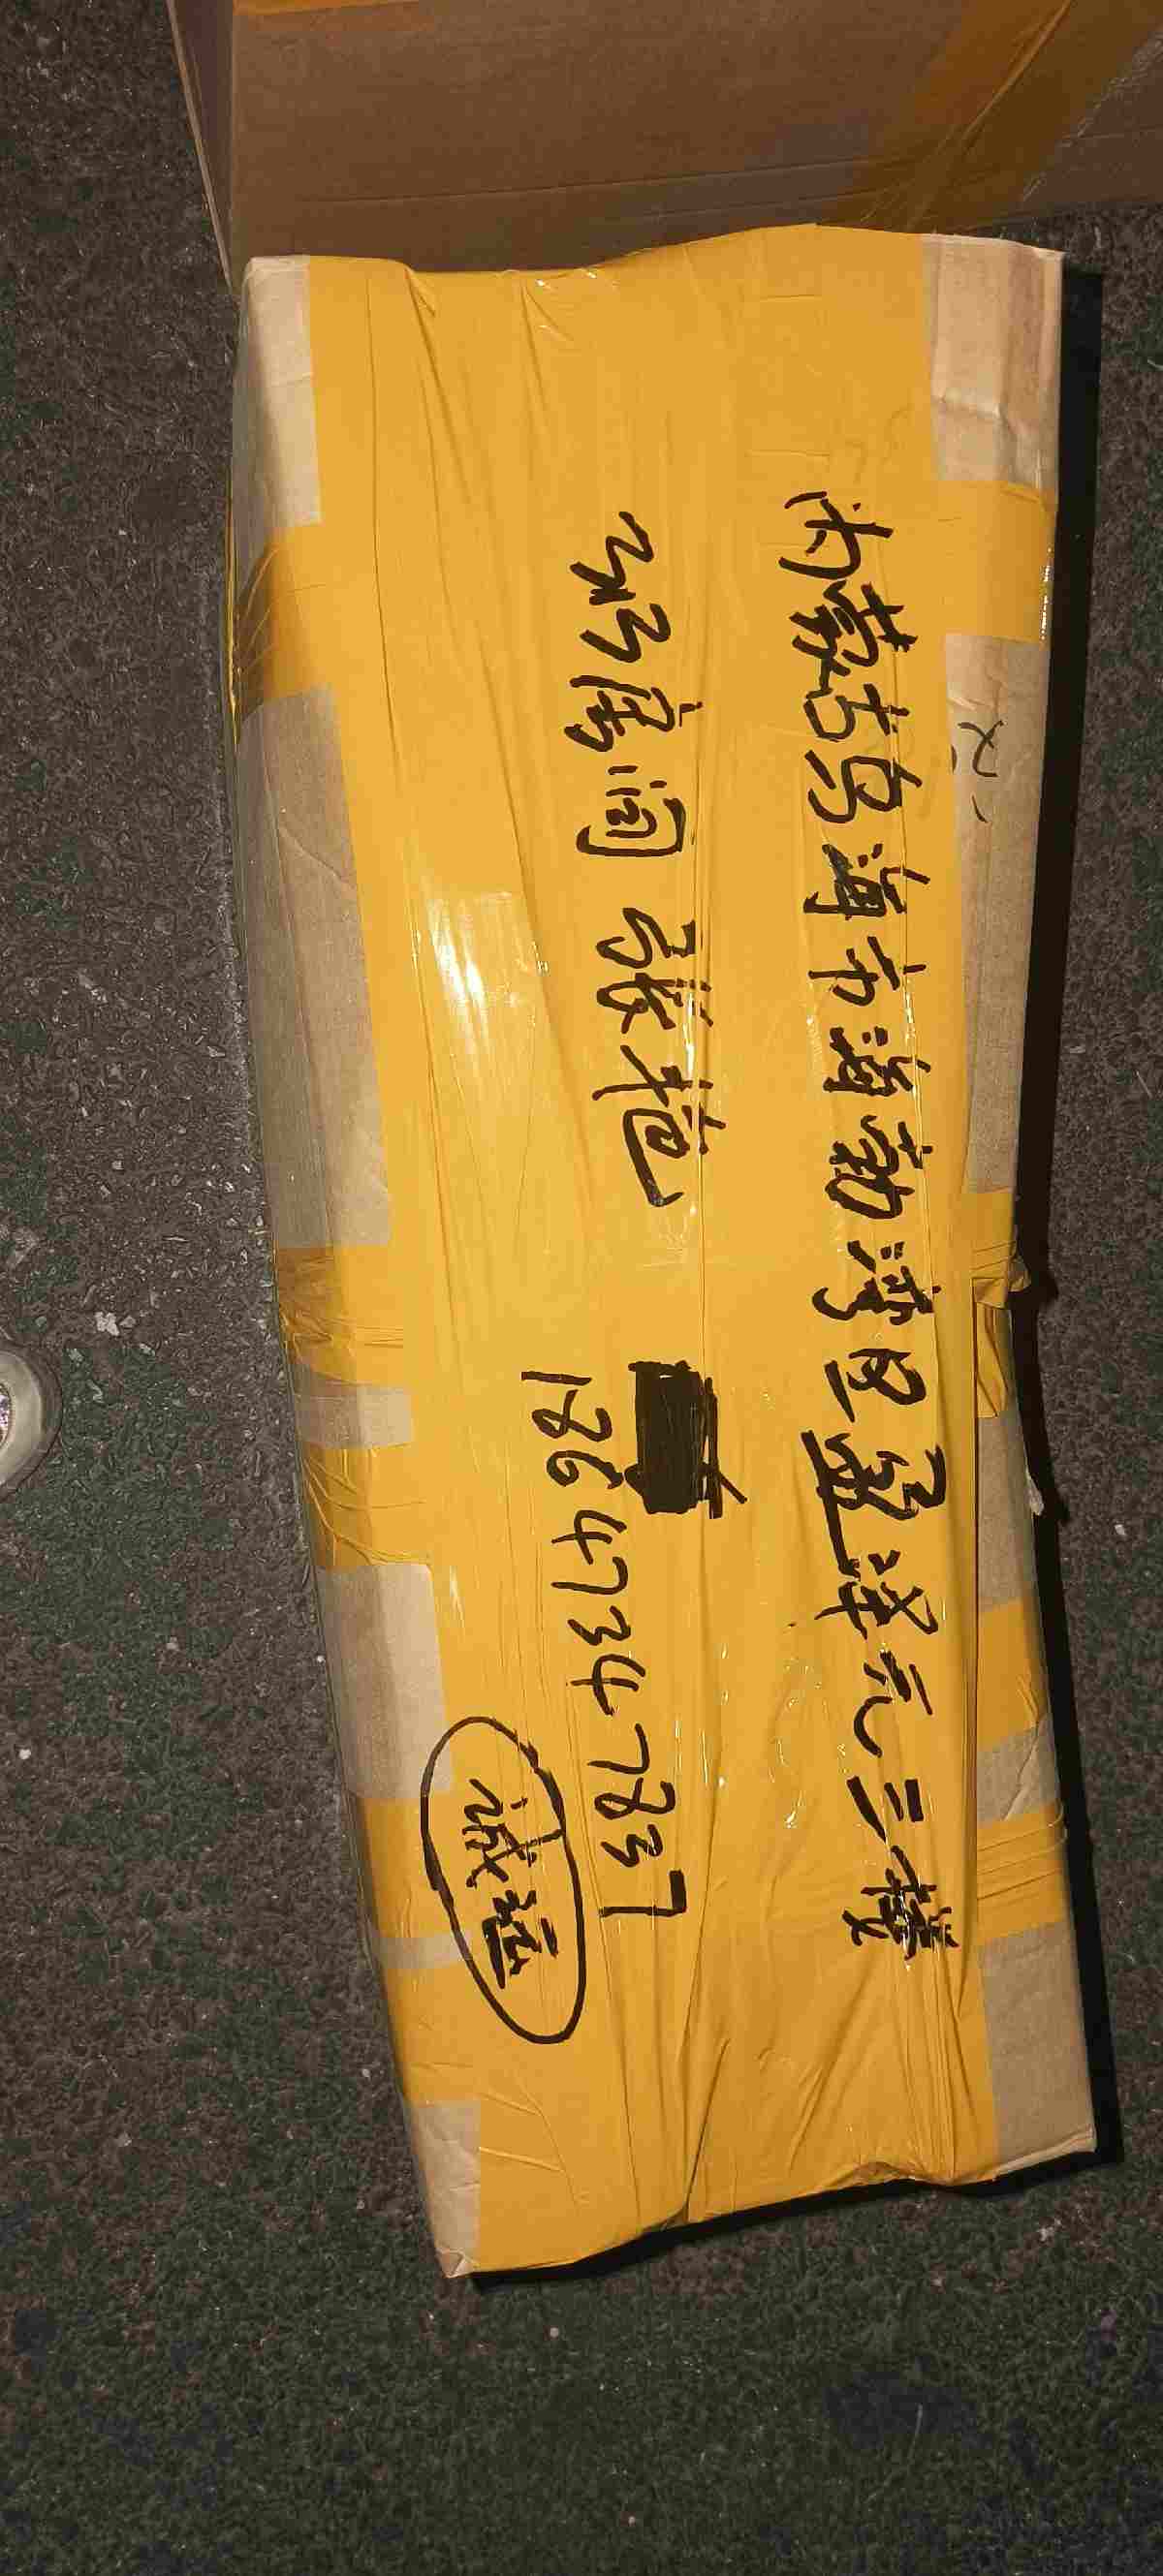 内蒙古乌海市海勃湾区盛泽元三楼
25号房间 张艳
18647347837
诚运